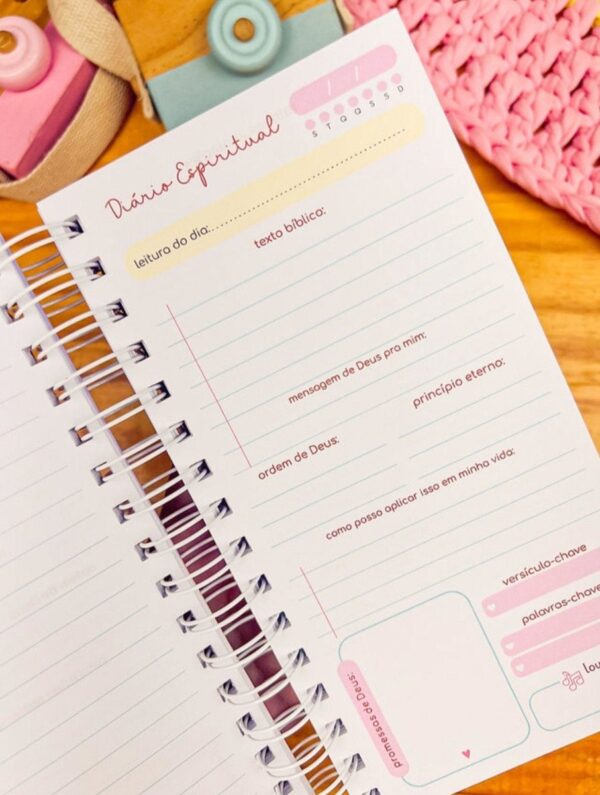 / /
S T Q Q S S D
Diário Espiritual
leitura do dia:
texto bíblico:
mensagem de Deus pra mim:
ordem de Deus:
princípio eterno:
como posso aplicar isso em minha vida:
promessas de Deus:
versículo-chave
palavras-chave
lou